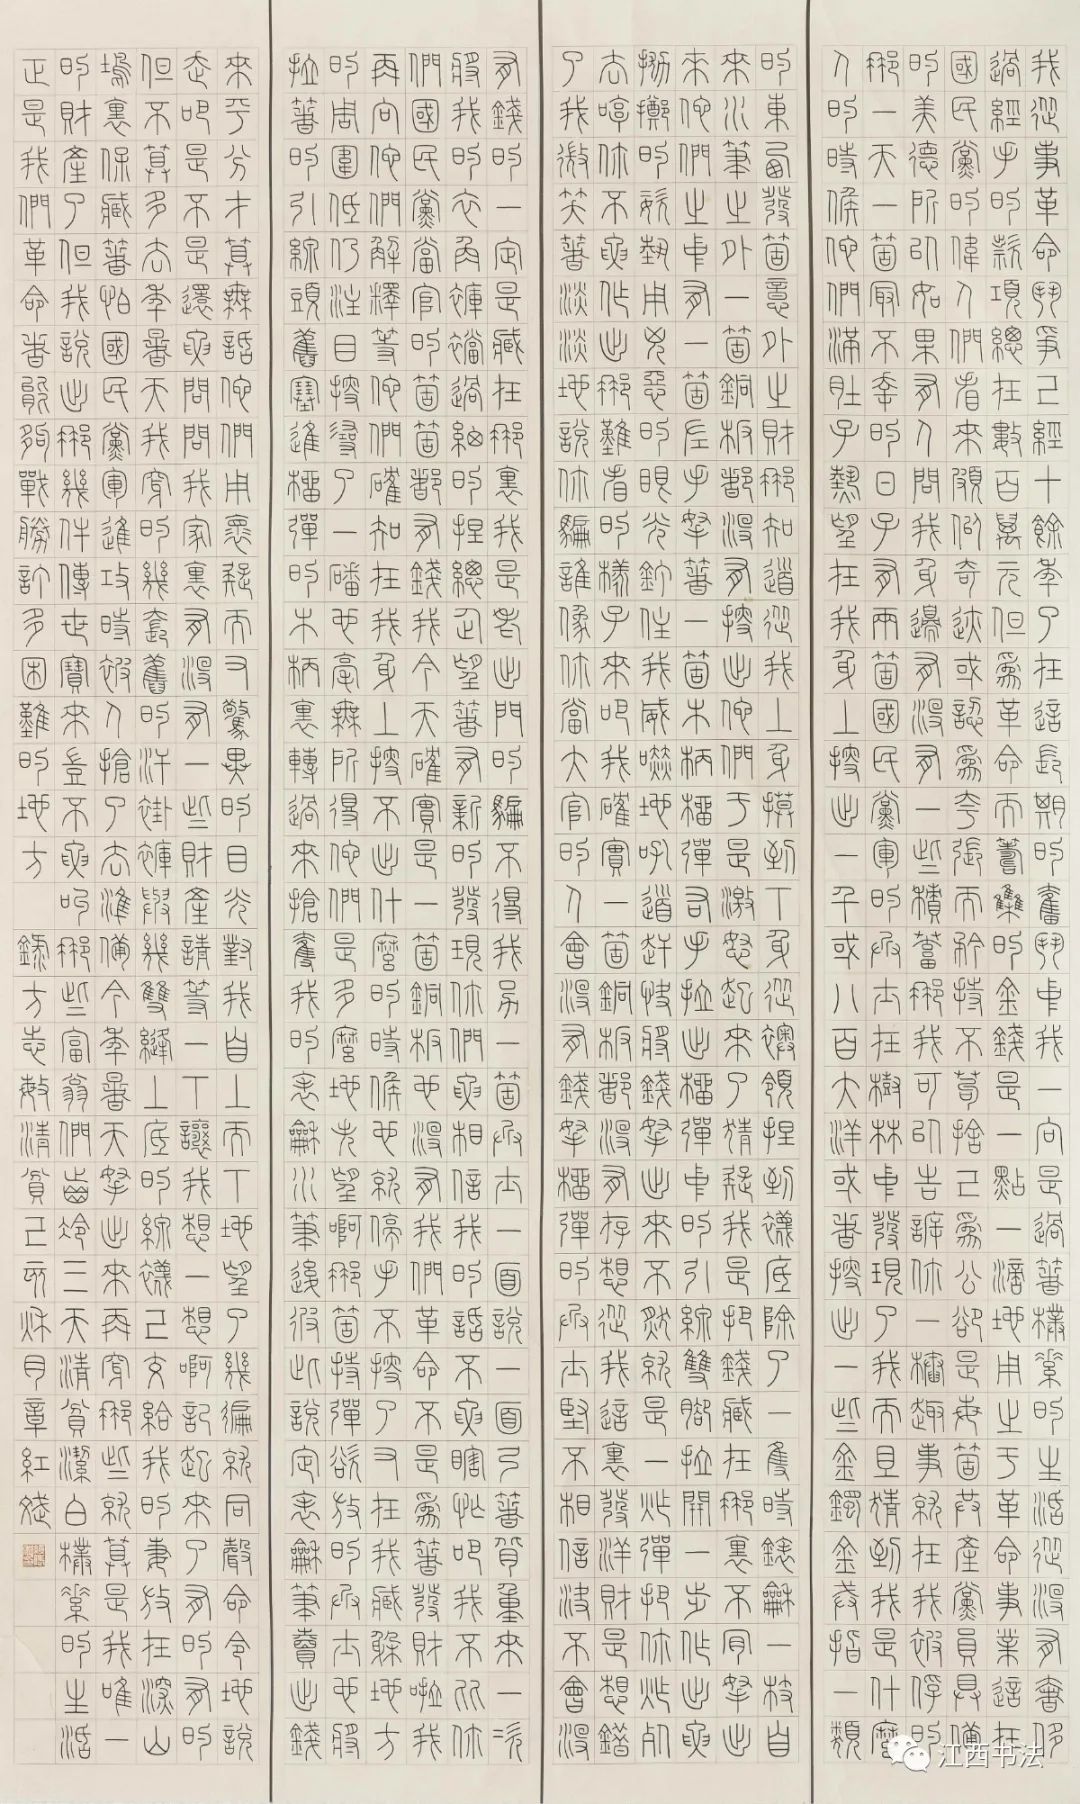 我從事革命鬥爭已經十餘年了在這長期的奮鬥中我一向是過著樸素的生活從沒有奢侈
過經手的款項總在數百萬元但為革命而籌集的金錢是一點一滴地用之于革命事業這在
國民黨的偉人們看來頗似奇跡或認為夸張而矜持不苟捨己為公卻是每箇共產黨員具備
的美德所以如果有人問我身邊有沒有一些積蓄那我可以告訴你一樁趣事就在我被俘的
那一天一箇最不幸的日子有兩箇國民黨軍的兵士在樹林中發現了我而且猜到我是什麼
人的時候他們滿肚子熱望在我身上搜出一千或八百大洋或者搜出一些金鐲金戒指一類
的東西發箇意外之財那知道從我上身摸到下身從襖領捏到襪底除了一隻時錶和一枝自
來水筆之外一箇銅板都沒有搜出他們于是激怒起來了猜疑我是把錢藏在那裏不肯拿出
來他們之中有一箇左手拿著一箇木柄榴彈右手拉出榴彈中的引線雙腳拉開一步作出要
拋擲的姿勢用兇惡的眼光釘住我威嚇地吼道趕快將錢拿出來不然就是一炸彈把你炸死
去哼你不要作出那難看的樣子來吧我確實一箇銅板都沒有存想從我這裏發洋財是想錯
了我微笑著淡淡地說你騙誰像你當大官的人會沒有錢拿榴彈的兵士堅不相信決不會沒
有錢的一定是藏在那裏我是老出門的騙不得我另一箇兵士一面說一面弓著背重來一次
將我的衣角褲襠過細的捏總企望著有新的發現你們要相信我的話不要瞎忙吧我不比你
們國民黨當官的箇箇都有錢我今天確實是一箇銅板也沒有我們革命不是為著發財啦我
再向他們解釋等他們確知在我身上搜不出什麼的時候也就停手不搜了又在我藏躲地方
的周圍低仍注目搜尋了一番也毫無所得他們是多麼地失望啊那箇持彈欲放的兵士也將
拉著的引線頭舊塞進榴彈的木柄裏轉過來搶奪我的表和水筆後彼此說定表和筆賣出錢
來平分才算無話他們用懷疑而又驚異的目光對我自上而下地望了幾遍就同聲命令地說
走吧是不是還要問問我家裏有沒有一些財產請等一下讓我想一想啊記起來了有的有的
但不算多去年暑天我穿的幾套舊的汗褂褲與幾雙縫上底的線襪已交給我的妻放在深山
塢裏保藏著怕國民黨軍進攻時被人搶了去準備今年暑天拿出來再穿那些就算是我唯一
的財產了但我說出那幾件傳世寶來豈不要叫那些富翁們齒冷三天清貧潔白樸素的生活
正是我們革命者能夠戰勝許多困難的地方 錄方志敏清貧己亥秋月章紅
江西书法